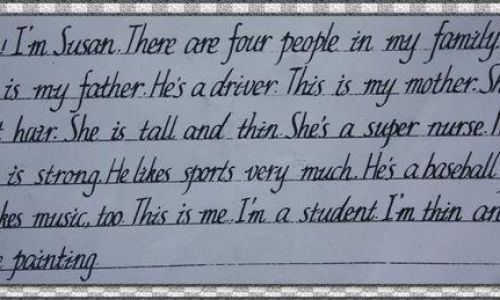 ! I'm Susan. There are four people in my family
is my father. He's a driver. This is my mother. Sh
hair. She is tall and thin. She's a super nurse.
is strong. He likes sports very much. He's a baseball
kes music, too. This is me. I'm a student. I'm thin an
painting